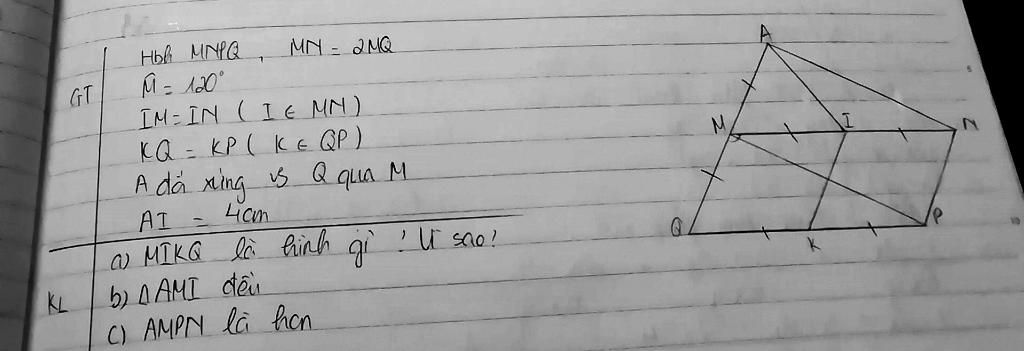 GT
Hbh MNPQ, MN = 2MQ
M̂ = 120°
IM = IN ( I ∈ MN )
KQ = KP ( K ∈ QP )
A đối xứng vs Q qua M
AI = 4cm
KL
a) MIKQ là hình gì ? Vì sao?
b) ΔAMI đều
c) AMPN là hcn
A
M I N
Q K P